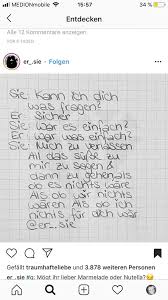 MEDIONmobile
15:57
37 %
Entdecken
Alle 12 Kommentare anzeigen
VOR 5 TAGEN
er_.sie • Folgen
Sie: Kann ich dich
was fragen?
Er: Sicher
Sie: War es einfach?
Er: War was einfach?
Sie: Mich zu verlassen
All das süße zu
mir zu sagen &
dann zu gehen als
ob es nichts wäre
Als ob wir nichts
wären Als ob ich
nichts für dich wär
@er_.sie
Gefällt traumhafteliebe und 3.878 weiteren Personen
er_.sie Hier ihr lieber Marmelade oder Nutella?